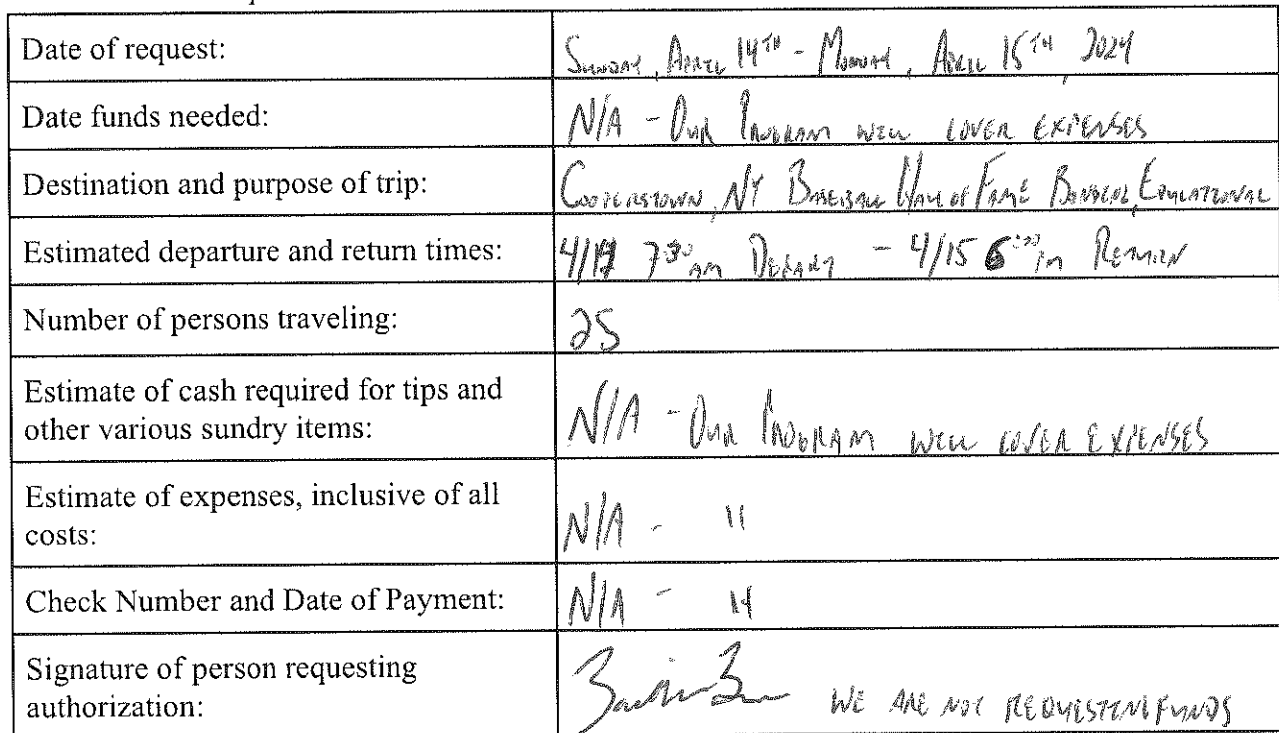 Date of request: Sunday, April 14TH - Monday, April 15TH, 2024
Date funds needed: N/A - Our Program will cover expenses
Destination and purpose of trip: Cooperstown, NY Baseball Hall of Fame Educational
Estimated departure and return times: 4/14 7:30 am Depart - 4/15 6:00 pm Return
Number of persons traveling: 25
Estimate of cash required for tips and
other various sundry items: N/A - Our Program will cover expenses
Estimate of expenses, inclusive of all
costs: N/A - "
Check Number and Date of Payment: N/A - "
Signature of person requesting
authorization: WE ARE NOT REQUESTING FUNDS